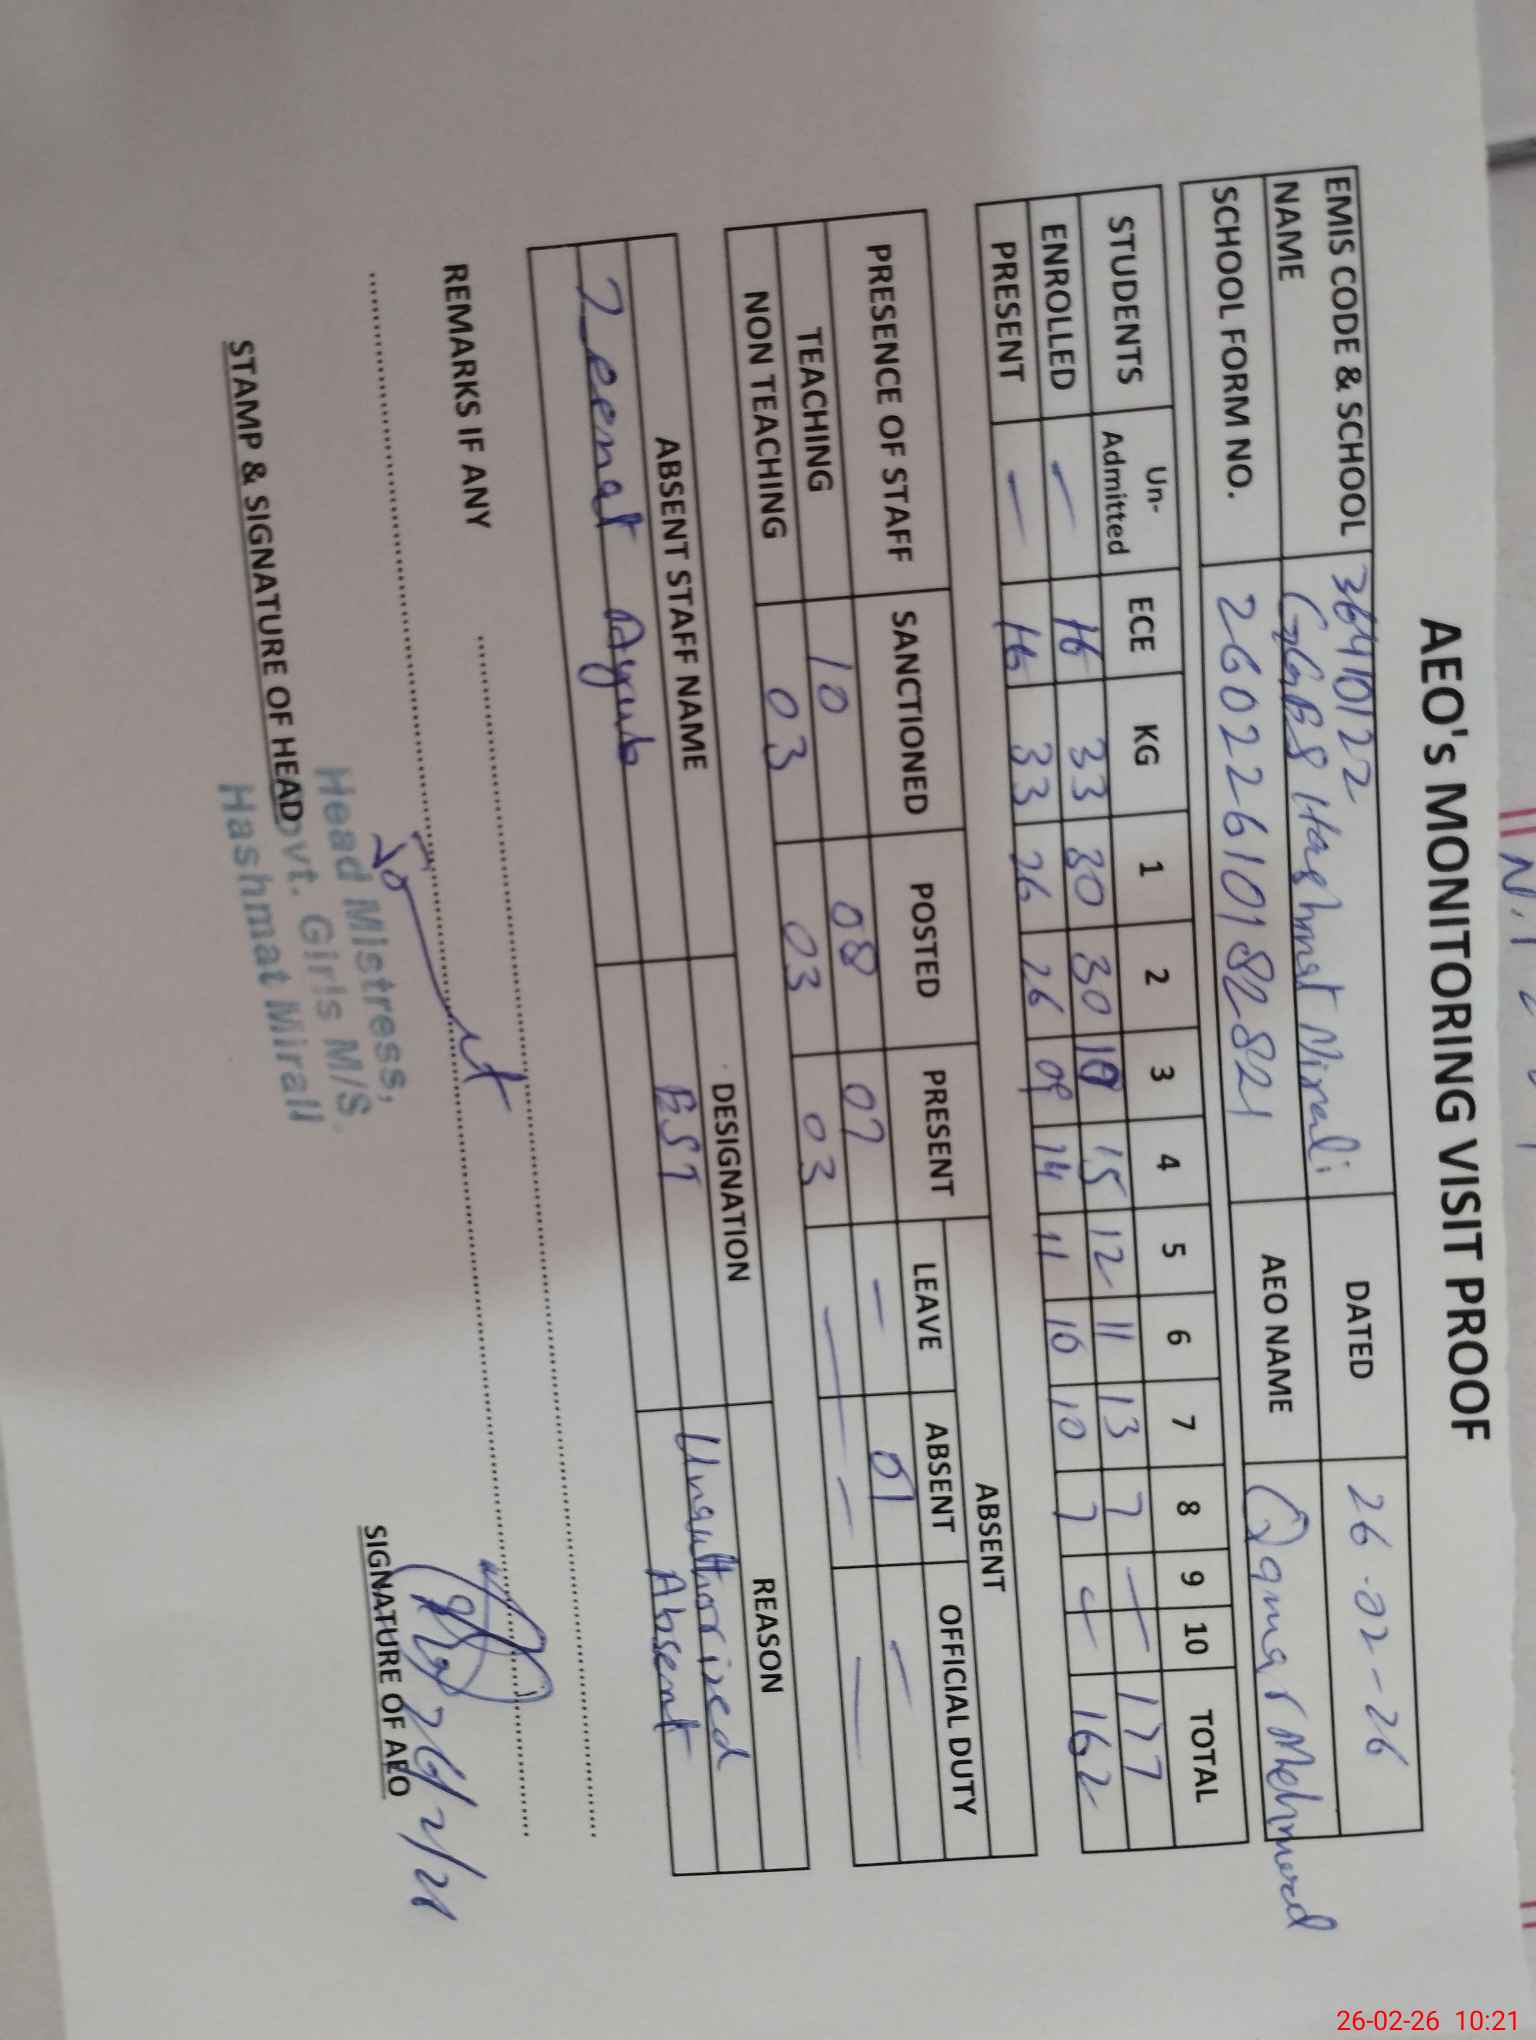 AEO's MONITORING VISIT PROOF
EMIS CODE & SCHOOL NAME 36410122 Hashmat Mirali DATED 26-02-26
SCHOOL FORM NO. 26022610182821 AEO NAME Qamar Mehmood
STUDENTS Un-Admitted ECE KG 1 2 3 4 5 6 7 8 9 10 TOTAL
ENROLLED — 16 33 30 30 10 15 12 11 13 7 — 177
PRESENT — 16 33 26 26 09 14 11 10 10 7 — 162
PRESENCE OF STAFF SANCTIONED POSTED PRESENT ABSENT
LEAVE ABSENT OFFICIAL DUTY
TEACHING 10 08 07 — 01 —
NON TEACHING 03 03 03 — — —
ABSENT STAFF NAME DESIGNATION REASON
Zeenat Ayub EST Unauthorized Absent
REMARKS IF ANY
STAMP & SIGNATURE OF HEAD SIGNATURE OF AEO
Head Mistress,
Govt. Girls M/S.
Hashmat Mirali
26/2/26
26-02-26 10:21